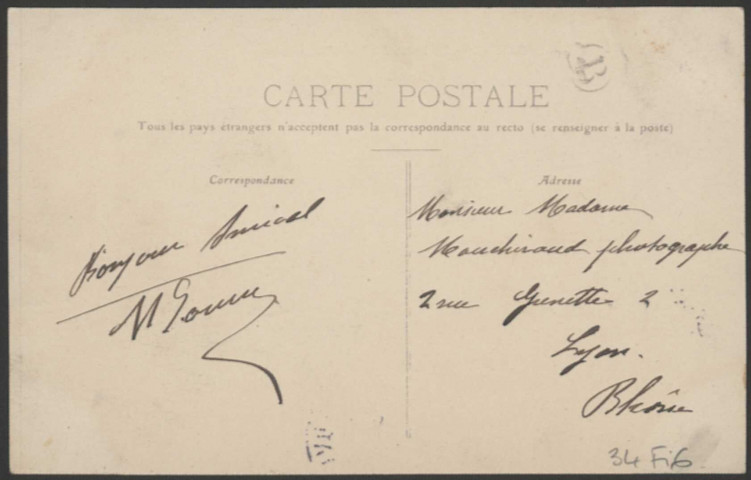 CARTE POSTALE
Tous les pays étrangers n'acceptent pas la correspondance au recto (se renseigner à la poste)
Correspondance
Bonjour Amical
Adresse
Monsieur Madame
photographe
2 rue Grenette 2
Lyon.
Rhône
34 Fi6